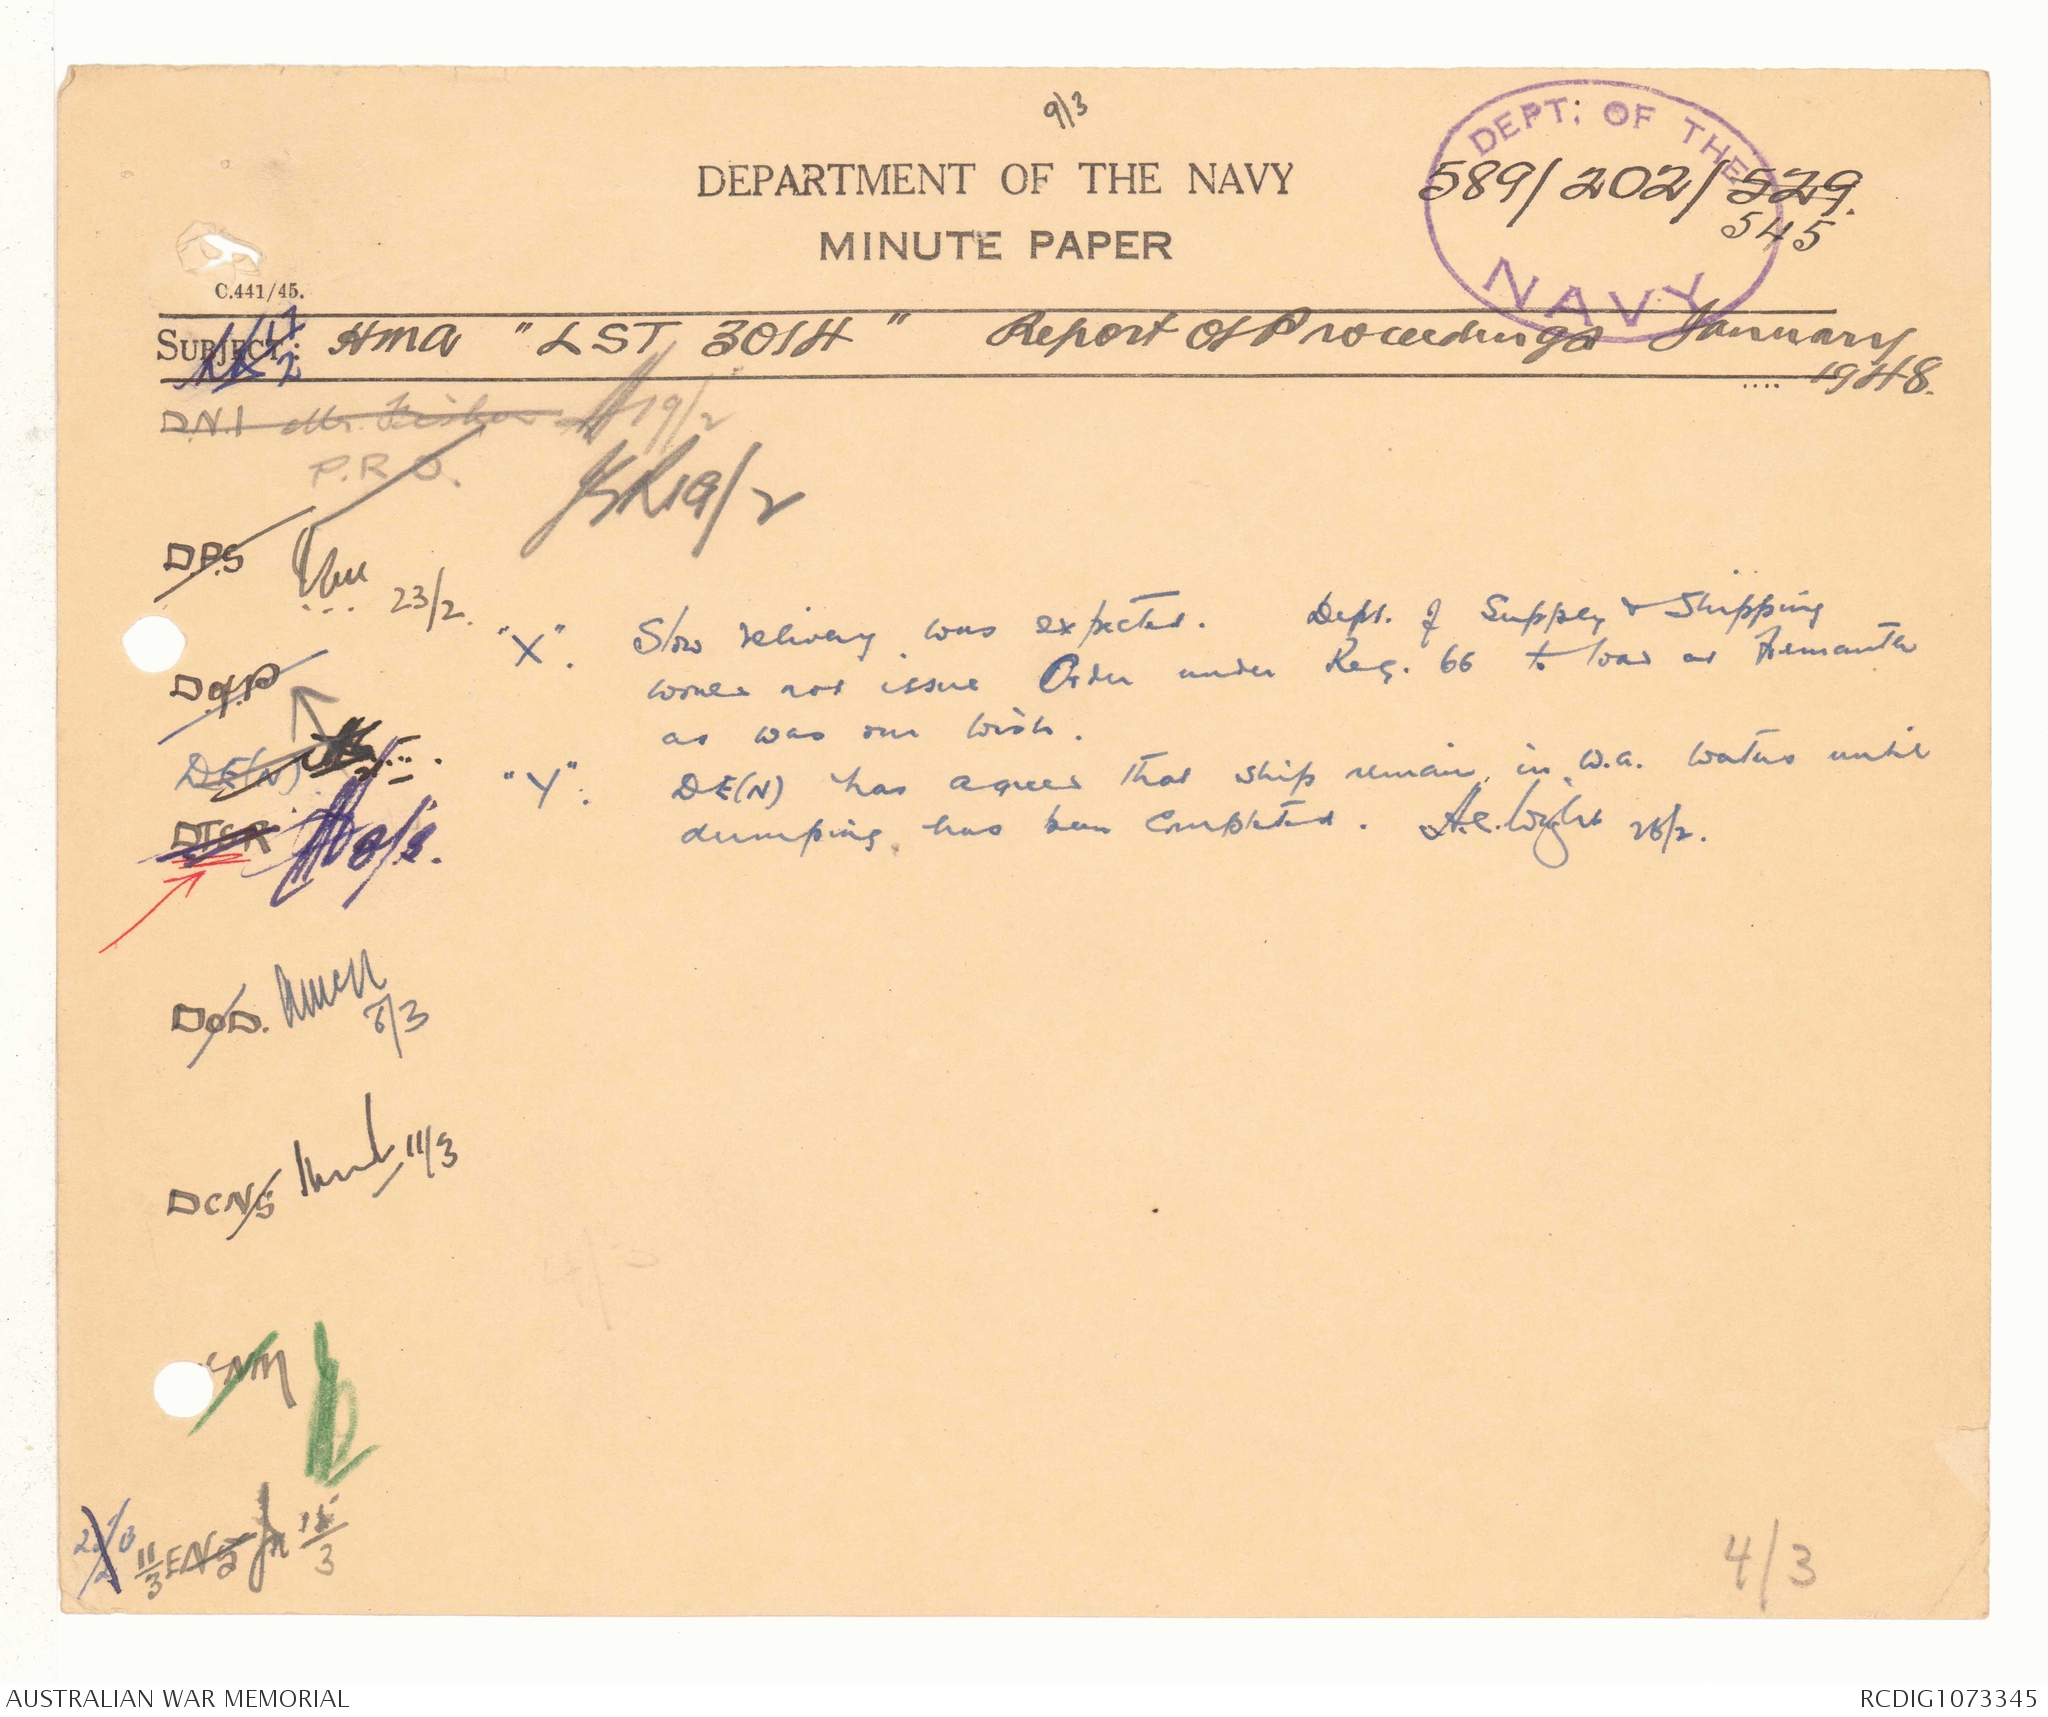 9/3
DEPT: OF THE
NAVY
DEPARTMENT OF THE NAVY
589/202/529.
545
MINUTE PAPER
C.441/45.
SUBJECT: HMA "LST 3014" Report Of Proceedings January
1948.
D.N.I Mr. Fisher 19/2
P.R.O. 19/2
DPS 23/2.
"X". Slow delivery was expected. Dept. of Supply & Shipping
would not issue Order under Reg. 66 to load at Fremantle
as was our wish.
DE(N)
"Y". DE(N) has agreed that ship remain in W.A. waters until
dumping has been completed. A.C. Wight 28/2.
DTSR
DOD. 8/3
DCNS 11/3
11/3
4/3
AUSTRALIAN WAR MEMORIAL
RCDIG1073345